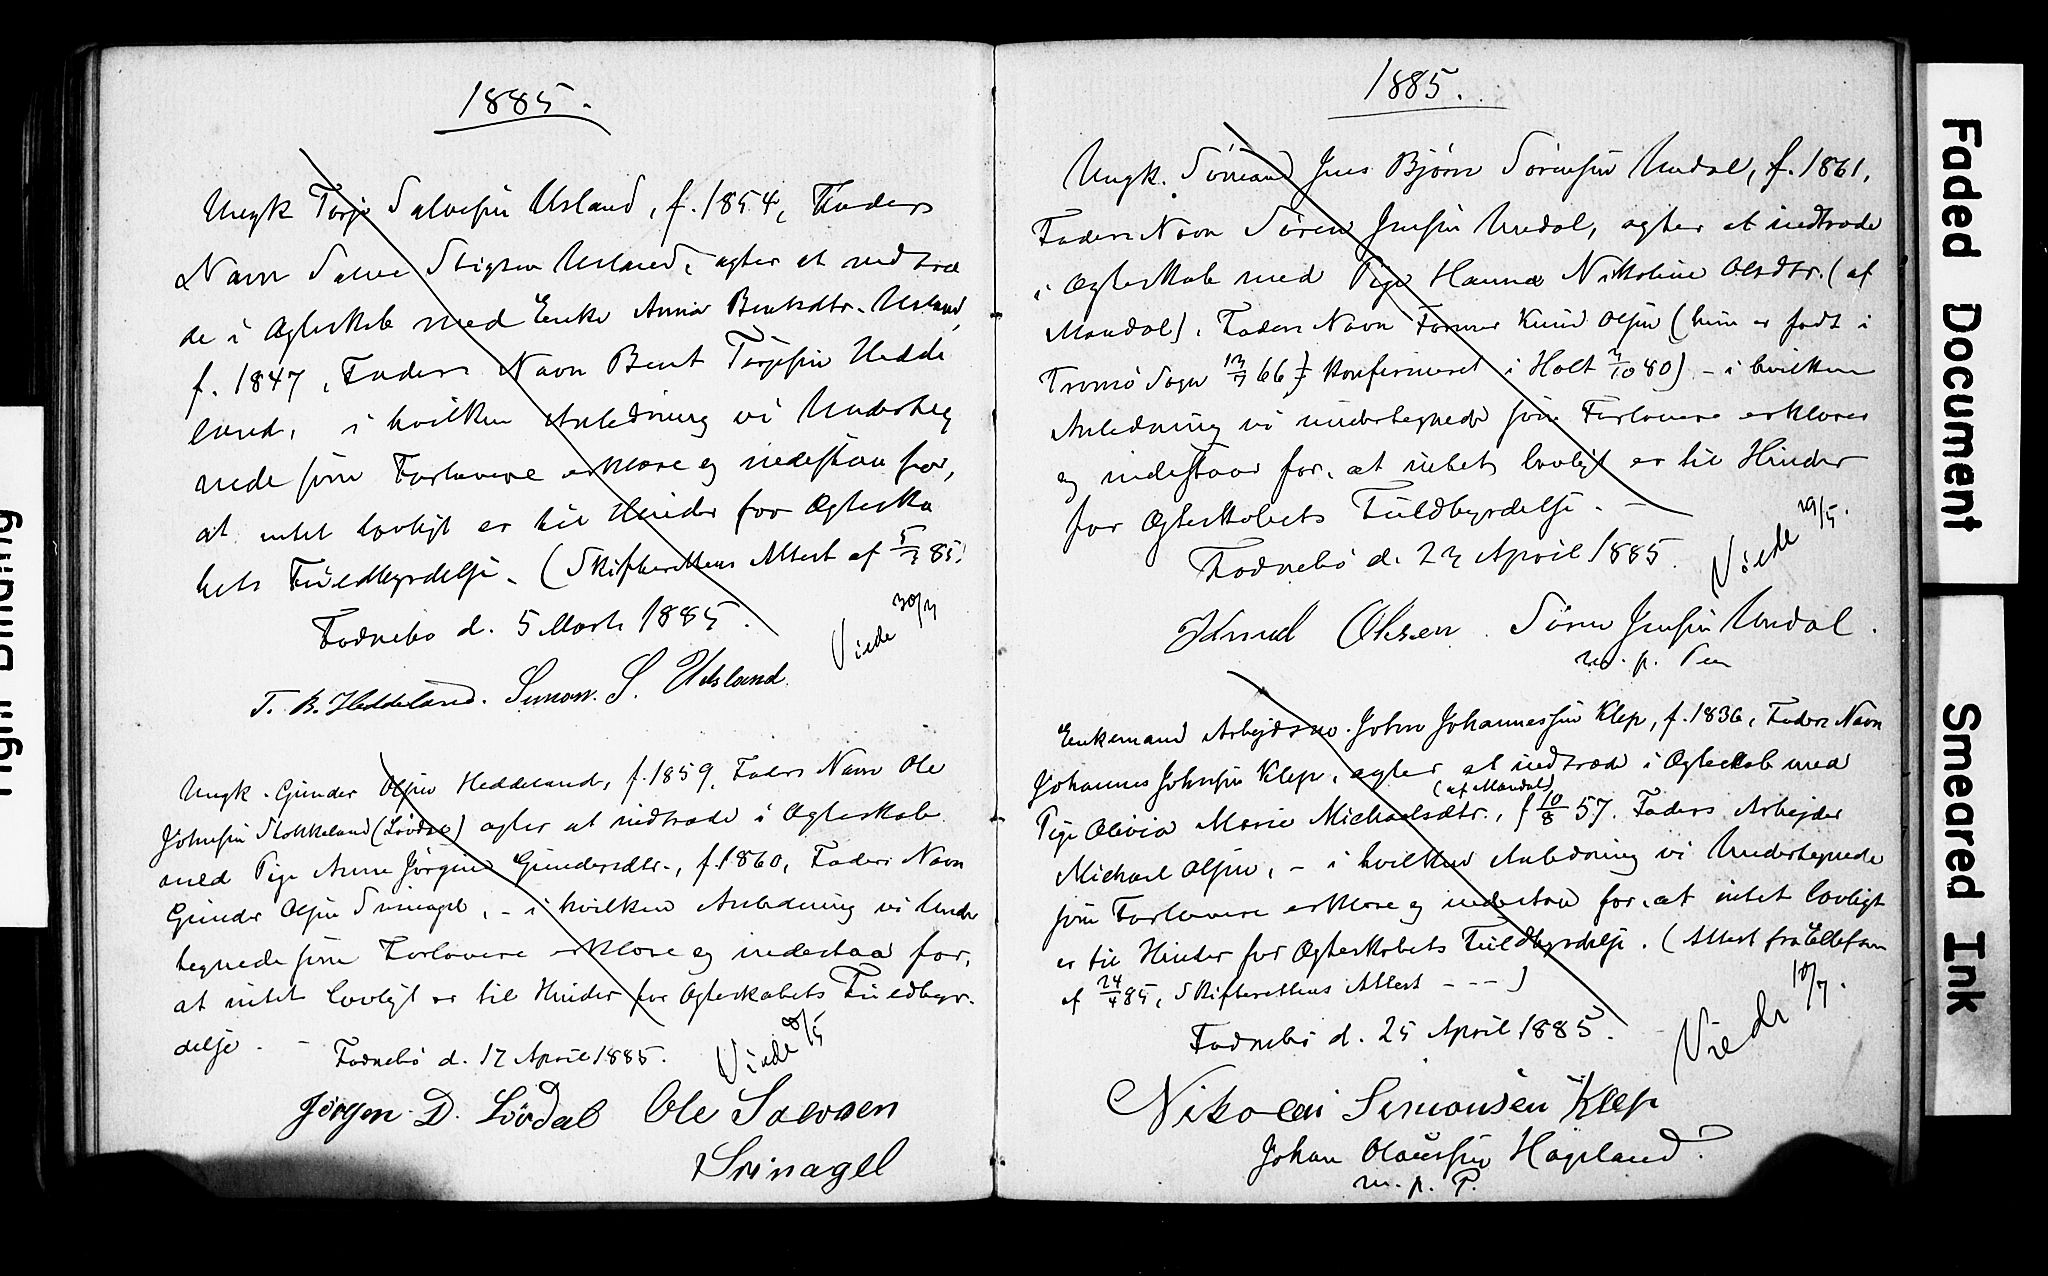 1885.
Ungk Torje Salvesen Usland, f. 1854, Faders
Navn Salve Stigsen Usland, agter at indtræ
de i Ægteskab med Enke Anna Bentsdtr. Usland,
f. 1847, Faders Navn Bent Torjesen Hedde
land, i hvilken Anledning vi Underteg
nede som Forlovere erklære og indestaa for,
at intet lovligt er til Hinder for Ægteska
bets Fuldbyrdelse. (Skifterettens Attest af 5/3 85.)
Fodnebö d. 5 Marts 1885.
Viede 30/3
T. B. Heddeland. Simon. S. Udsland.
Ungk. Gunder Olsen Heddeland, f. 1859, Faders Navn Ole
Johnsen Stokkeland (Lövdal) agter at indtræde i Ægteskab
med Pige Anne Jörgine Gundersdtr., f. 1860, Faders Navn
Gunder Olsen Svinagel, - i hvilken Anledning vi Under
tegnede som Forlovere erklære og indestaa for,
at intet lovligt er til Hinder for Ægteskabets Fuldbyr-
delse. -
Fodnebö d. 12 April 1885.
Viede 8/5
Jörgen D. Lövdal Ole Salvesen
Svinagel
1885.
Ungk. Sömand Jens Bjørn Sörensen Undal, f. 1861,
Faders Navn Sören Jensen Undal, agter at indtræde
i Ægteskab med Pige Hanna Nikoline Olsdtr. (af
Mandal), Faders Navn Knud Olsen (hun er født i
Tromsö Sogn 13/7 66, konfirmeret i Holt 3/10 80) - i hvilken
Anledning vi undertegnede som Forlovere erklærer
og indestaar for, at intet lovligt er til Hinder
for Ægteskabets Fuldbyrdelse. -
Fodnebö d. 23 April 1885.
Viede 29/5.
Knud Olsen. Sören Jensen Undal.
m. p. Pen
Enkemand Arbejdsm. John Johannessen Klep, f. 1836, Faders Navn
Johannes Johnsen Klep, agter at indtræde i Ægteskab med
(af Mandal)
Pige Olivia Marie Michaelsdtr., f 10/8 57. Faders Arbejder
Michael Olsen, - i hvilken Anledning vi Undertegnede
som Forlovere erklære og indestaa for, at intet lovligt
er til Hinder for Ægteskabets Fuldbyrdelse. (Attest fra
af 24/4 85, Skifterettens Attest - - -)
Fodnebö d. 25 April 1885.
Viede 10/7.
Nikolai Simonsen Klep
Johan Olaussen Høgeland.
m. p. P.
Faded Document
Smeared Ink
Tight Binding